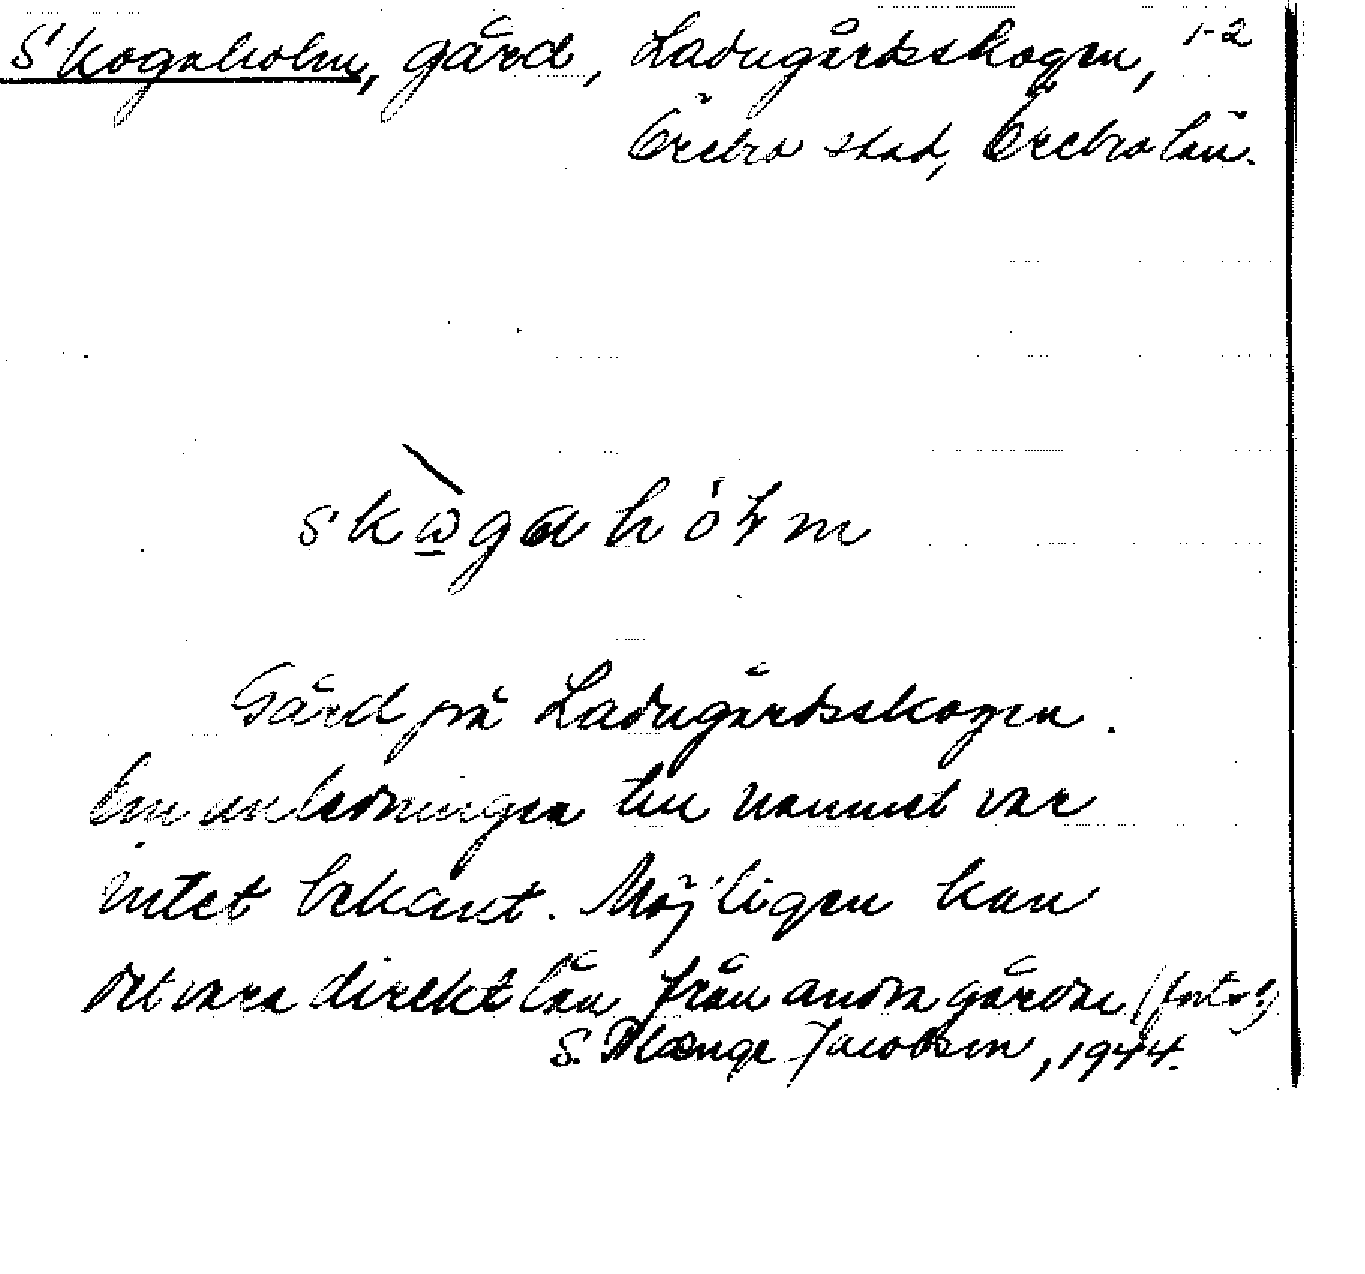 Skogaholm, gård, Ladugårdsskogen, 1-2
Örebro stad, Örebro län.
skògahólm
Gård på Ladugårdsskogen.
Om anledningen till namnet var
intet bekant. Möjligen kan
det vara direkt lån från andra gårdar (forts!)
S. Blænge Jacobsen, 1944.